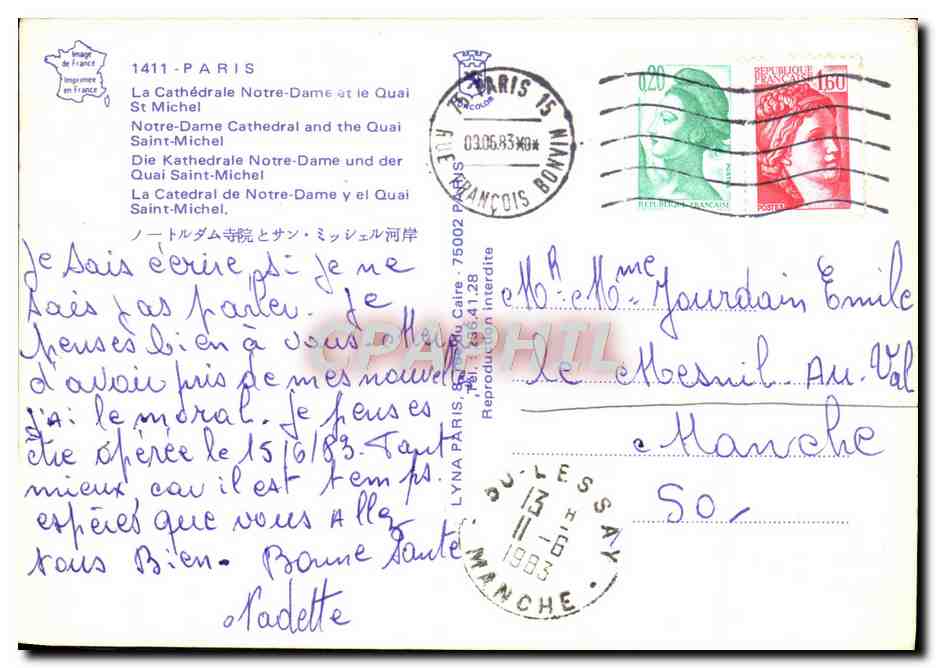 Image
de France
Imprimée
en France
1411 - PARIS
La Cathédrale Notre-Dame et le Quai
St Michel
Notre-Dame Cathedral and the Quai
Saint-Michel
Die Kathedrale Notre-Dame und der
Quai Saint-Michel
La Catedral de Notre-Dame y el Quai
Saint-Michel.
ノートルダム寺院とサン・ミッシェル河岸
Je sais écrire, si je ne
sais pas parler. Je
penses bien à vous. Merci
d'avoir pris de mes nouvelles
j'ai le moral. Je penses
être opérée le 15/6/83. Tant
mieux, car il est temps.
espères que vous Allez
tous Bien. Bonne Santé
Nadette
LYNA PARIS, du Caire - 75002 PARIS
Tél. 236.41.28
Reproduction interdite
75 PARIS 15
03.06.83
RUE FRANÇOIS BONVIN
0,20
REPUBLIQUE FRANÇAISE
REPUBLIQUE
FRANÇAISE 1,60
POSTES
Mr. Mme Jourdain Emile
Le Mesnil Au Val
Manche
50
50 LESSAY
13 H
11-6
1983
MANCHE
CPAPHIL